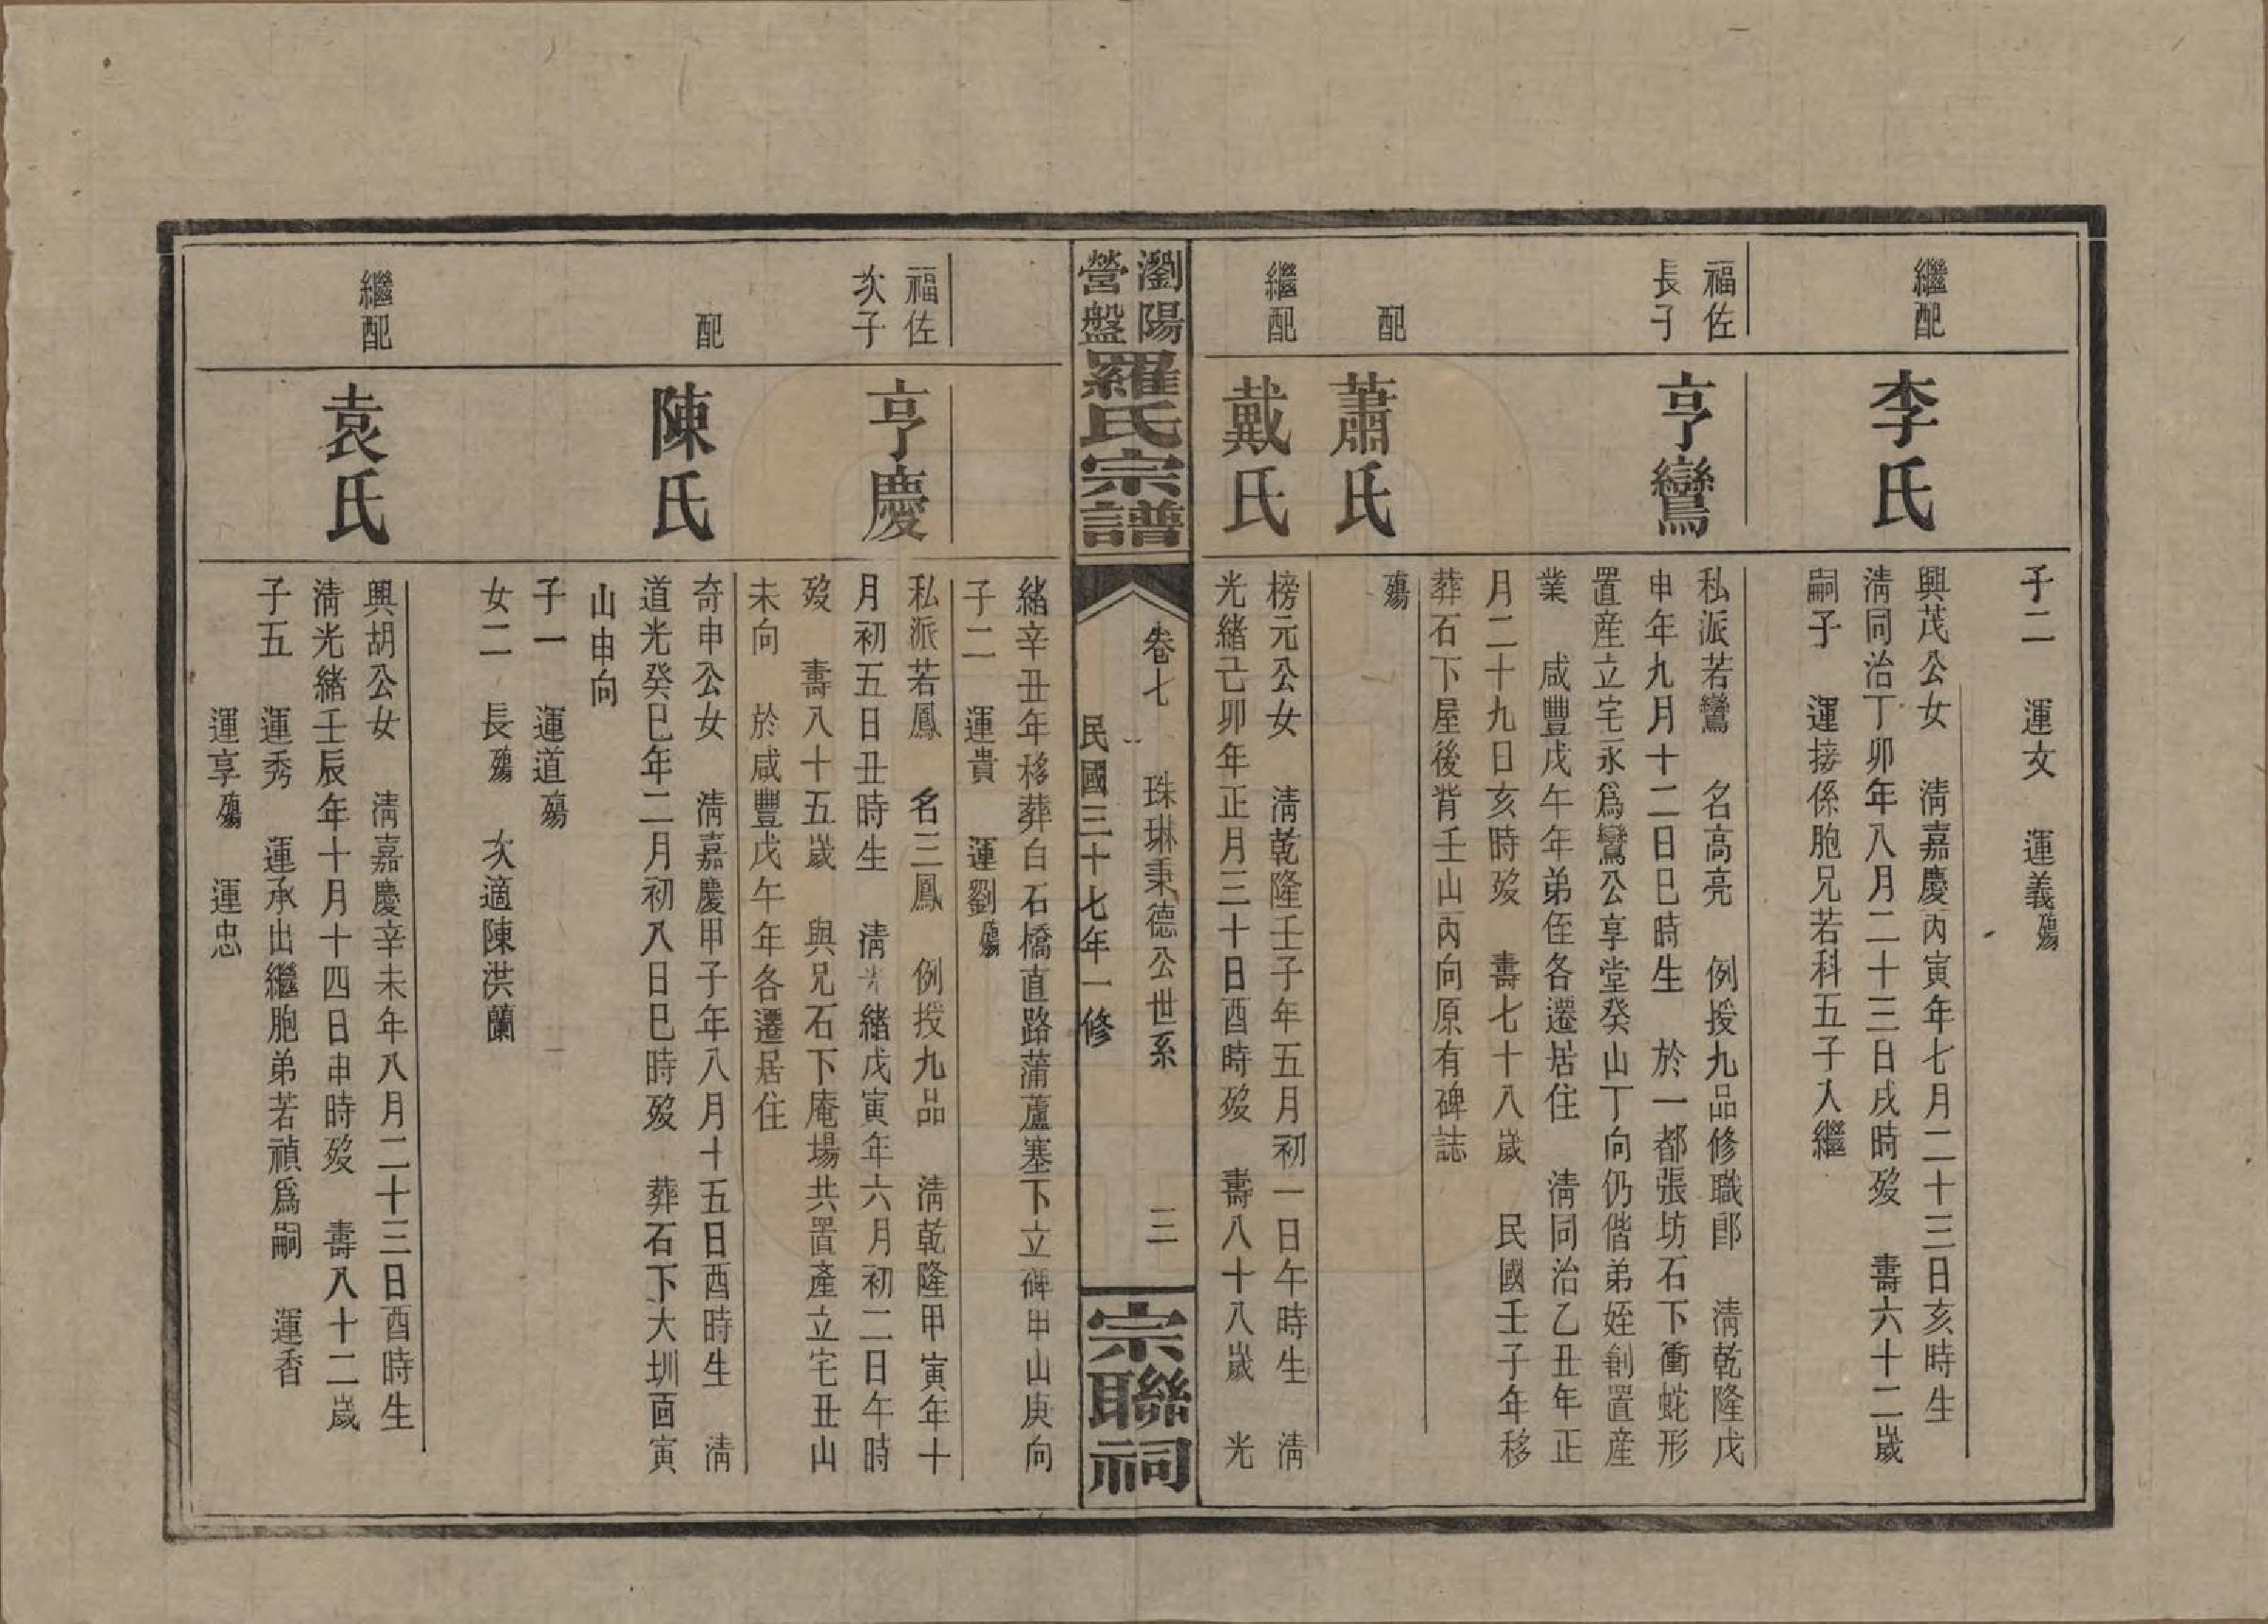 子二　運文　運義殤
繼配
李氏
興茂公女　淸嘉慶丙寅年七月二十三日亥時生
淸同治丁卯年八月二十三日戌時歿　壽六十二歲
嗣子　運接係胞兄若科五子入繼
福佐
長子
亨鸞
私派若鸞　名高亮　例授九品修職郎　淸乾隆戊
申年九月十二日巳時生　於一都張坊石下衝蛇形
置産立宅永爲鸞公享堂癸山丁向仍偕弟姪創置産
業　咸豐戊午年弟侄各遷居住　淸同治乙丑年正
月二十九日亥時歿　壽七十八歲　民國壬子年移
葬石下屋後背壬山丙向原有碑誌
配
蕭氏
殤
繼配
戴氏
榜元公女　淸乾隆壬子年五月初一日午時生　淸
光緒己卯年正月三十日酉時歿　壽八十八歲　光
瀏陽
營盤
羅氏宗譜
卷七　珠琳秉德公世系　三
民國三十七年一修
宗聯祠
緒辛丑年移葬白石橋直路蒲蘆塞下立碑申山庚向
子二　運貴　運劉殤
福佐
次子
亨慶
私派若鳳　名三鳳　例授九品　淸乾隆甲寅年十
月初五日丑時生　淸光緒戊寅年六月初二日午時
歿　壽八十五歲　與兄石下庵場共置産立宅丑山
未向　於咸豐戊午年各遷居住
配
陳氏
奇申公女　淸嘉慶甲子年八月十五日酉時生　淸
道光癸巳年二月初八日巳時歿　葬石下大圳面寅
山申向
子一　運道殤
女二　長殤　次適陳洪蘭
繼配
袁氏
興胡公女　淸嘉慶辛未年八月二十三日酉時生
淸光緒壬辰年十月十四日申時歿　壽八十二歲
子五　運秀　運承出繼胞弟若禎爲嗣　運香
運享殤　運忠